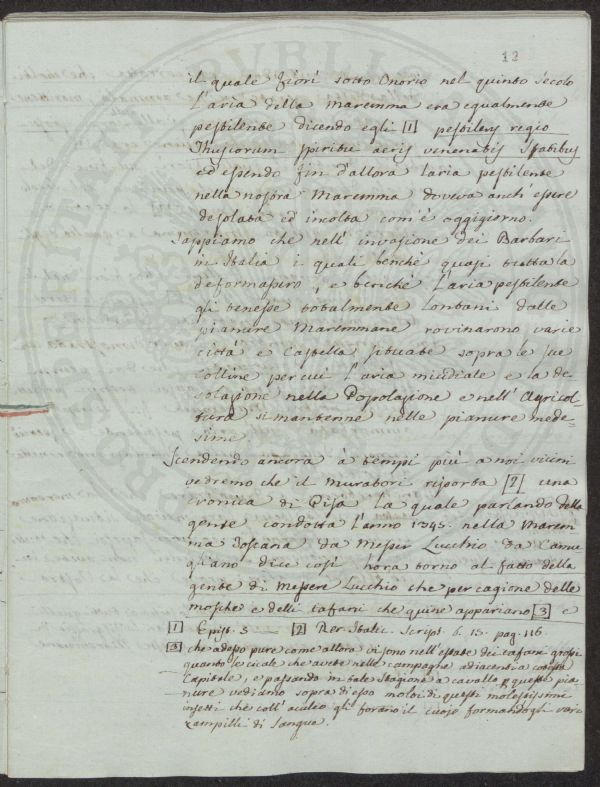 12
il quale fiorì sotto Onorio nel quinto secolo
l'aria della maremma era egualmente
pestilente dicendo egli [1] pestilens regio
Thuscorum spiritu aeris venenatis flatibus
ed essendo fin d'allora l'aria pestilente
nella nostra Maremma doveva anch'essere
desolata ed incolta com'è oggigiorno.
Sappiamo che nell'invasione dei Barbari
in Italia i quali benchè quasi tutta la
deformassero, e benchè l'aria pestilente
gli tenesse totalmente lontani dalle
pianure Maremmane rovinarono varie
città e Castella situate sopra le sue
Colline per cui l'aria micidiale e la de-
solazione nella Popolazione e nell'Agricol-
tura si mantenne nelle pianure mede=
sime.
Scendendo ancora à tempi più a noi vicini
vedremo che il muratori riporta [2] una
cronica di Pisa la quale parlando della
gente condotta l'anno 1345. nella Marem
ma Toscana da Messer Lucchio da Camu
gliano dice così hora torno al fatto della
gente di Messere Lucchio che per cagione delle
mosche e delli tafani che quine appariano [3] e
[1] Epist. 5 — [2] Rer Italic. Script. t. 15. pag. 116.
[3] che adesso pure come allora vi sono nell'estate dei tafani grossi
quanto le cicale che avete nelle campagne adiacenti a cotesta
Capitale, e passando in tale stagione a cavallo p queste pia-
nure vediamo sopra d'esso molti di questi molestissimi
insetti che coll'aculeo gli forano il cuojo formandogli varii
zampilli di sangue.